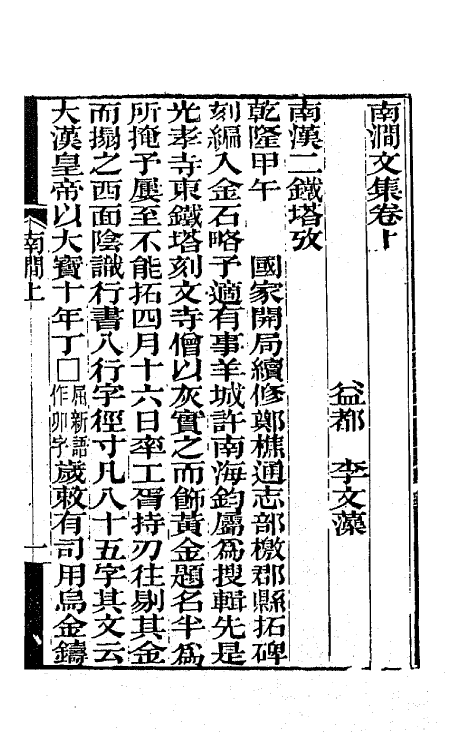 南澗文集卷上
益都 李文藻
南漢二鐵塔攷
乾隆甲午 國家開局續修鄭樵通志部檄郡縣拓碑
刻編入金石略予適有事羊城許南海鈞屬爲搜輯先是
光孝寺東鐵塔刻文寺僧以灰實之而飾黃金題名半爲
所掩予屢至不能拓四月十六日率工胥持刃往剔其金
而搨之西面陰識行書八行字徑寸凡八十五字其文云
大漢皇帝以大寶十年丁□屈新語作卯字歲敕有司用烏金鑄
南澗上
一